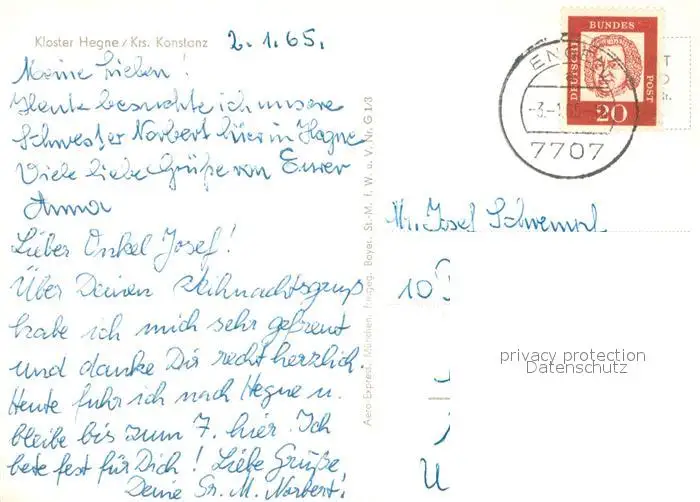 Kloster Hegne / Krs. Konstanz
2.1.65.
Meine Lieben!
Heute besuchte ich unsere
Schwester Norbert hier in Hegne
Viele liebe Grüße von Eurer
Anna
Lieber Onkel Josef!
Über Deinen Weihnachtsgruß
habe ich mich sehr gefreut
und danke Dir recht herzlich.
Heute fuhr ich nach Hegne u.
bleibe bis zum 7. hier. Ich
bete fest für Dich! Liebe Grüße,
Deine Sr. M. Norbert!
Aero Express, München, Freigeg. Bayer. St.-M. f. W. u. V. Nr. G 1/8
DEUTSCHE
BUNDES
POST
20
ENGEN
-3.-1.
7707
Josef
10
U
privacy protection
Datenschutz